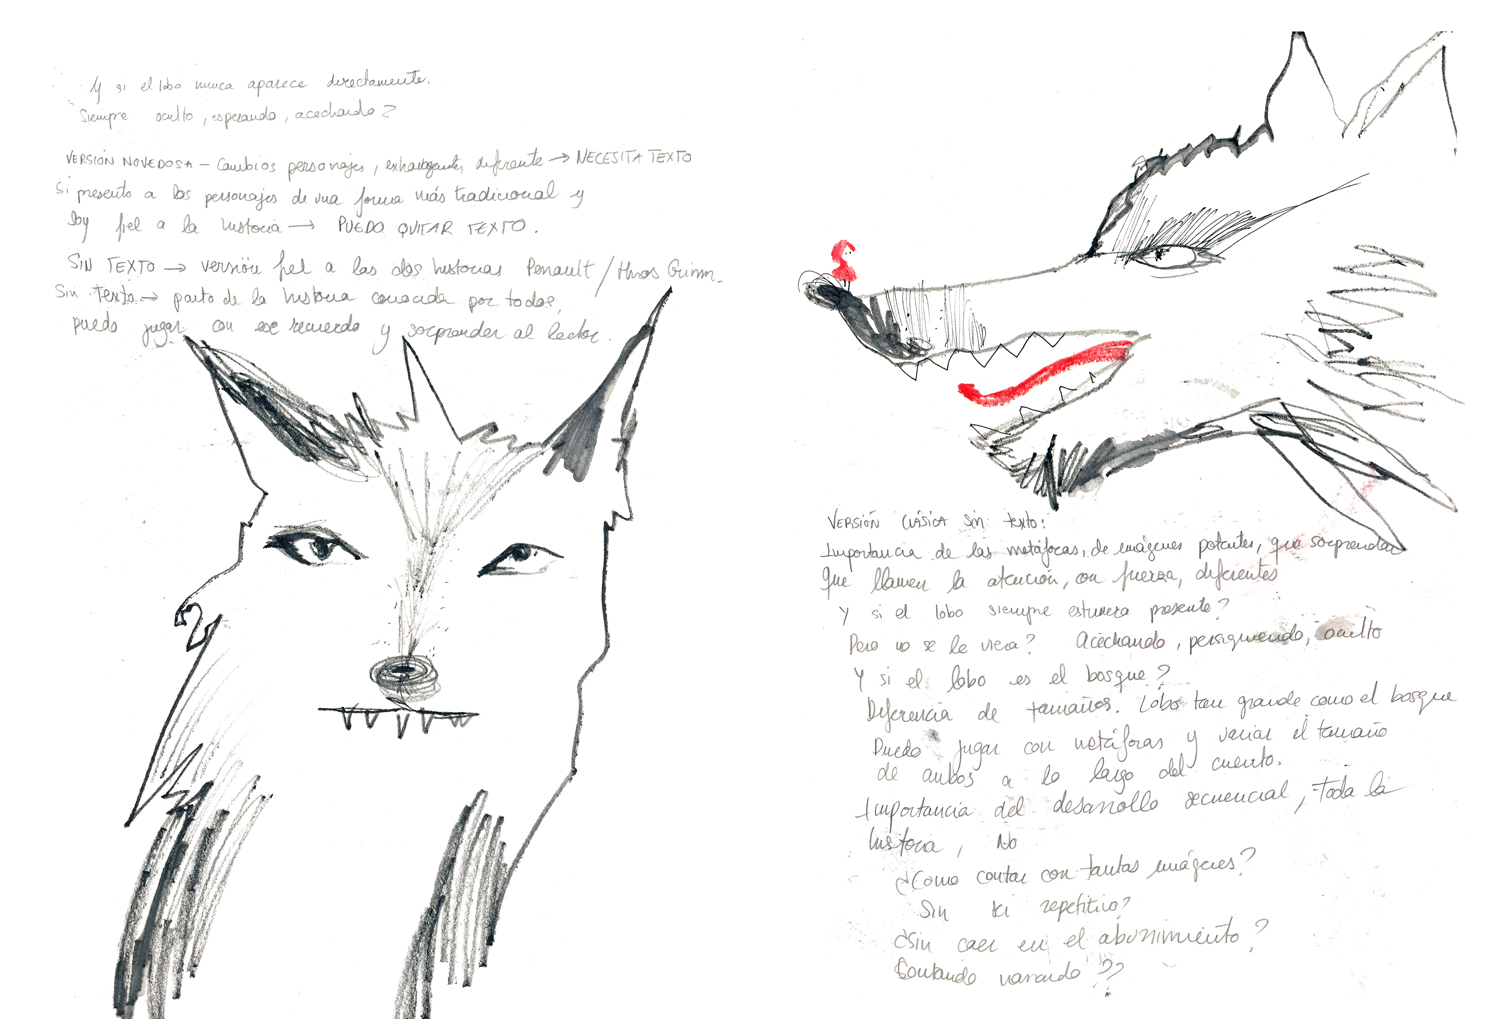 Y si el lobo nunca aparece directamente.
Siempre oculto, esperando, acechando?
VERSIÓN NOVEDOSA – Cambios personajes, extravagantes, diferente → NECESITA TEXTO
Si presento a los personajes de una forma más tradicional y
soy fiel a la historia → PUEDO QUITAR TEXTO.
SIN TEXTO → versión fiel a las dos historias Perrault / Hnos Grimm.
Sin Texto → parto de la historia conocida por todos,
puedo jugar con ese recuerdo y sorprender al lector.
VERSIÓN CLÁSICA Sin texto:
Importancia de las metáforas, de imágenes potentes, que sorprendan
que llamen la atención, con fuerza, diferentes
Y si el lobo siempre estuviera presente?
Pero no se le viera? Acechando, persiguiendo, oculto
Y si el lobo es el bosque?
Diferencia de tamaños. Lobo tan grande como el bosque
Puedo jugar con metáforas y variar el tamaño
de ambos a lo largo del cuento.
Importancia del desarrollo secuencial, toda la
historia, No
¿Como contar con tantas imágenes?
Sin ser repetitivo?
¿Sin caer en el aburrimiento?